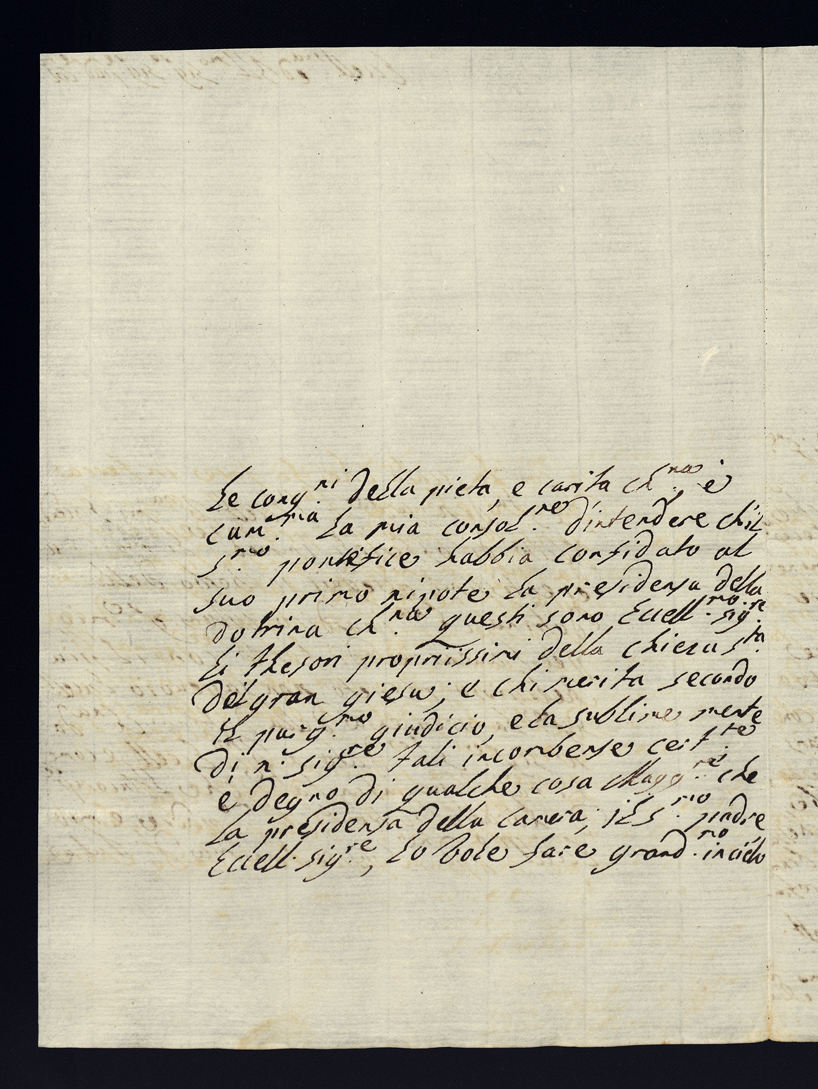 Le cong.ni della pieta, e carita ch.na è
cum.ma la mia consol.ne d'intendere ch'il
S.mo pontefice habbia confidato al
suo primo nipote la presidensa della
dotrina ch.na questi sono Eccell.mo sig.re
li thesori propriissimi della chiesa s.ta
del gran giesu; e chi merita secondo
il purg.mo giudicio, e la sublime mente
di n. sig.re tali incombense cert.te
è degno di qualche cosa Magg.re che
la presidensa della camera; il S.mo padre
Eccell. sig.re, lo vole fare grand.mo in cielo